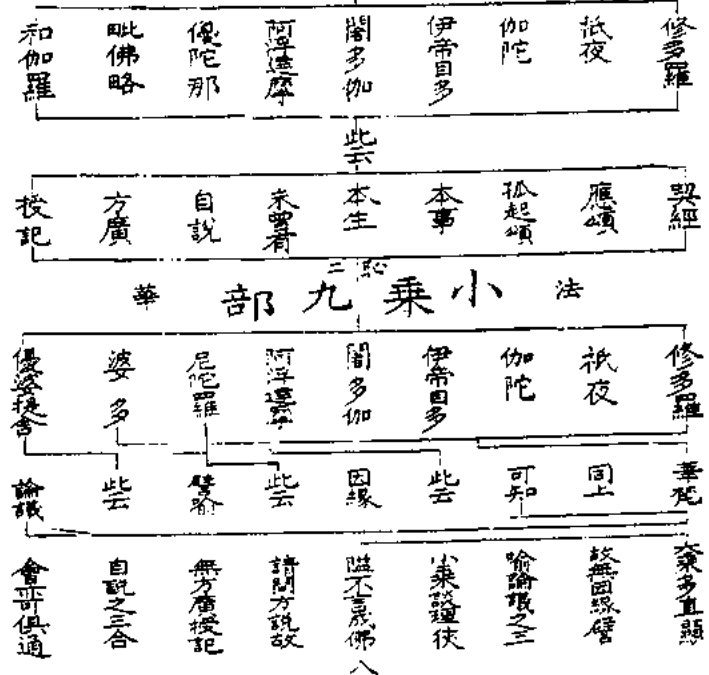 修多羅
祇夜
伽陀
伊帝目多
闍多伽
阿浮達摩
優陀那
毗佛略
和伽羅
此云
契經
應頌
孤起頌
本事
本生
未曾有
自說
方廣
授記
二
法
小乘九部
華
修多羅
祇夜
伽陀
伊帝目多
闍多伽
阿浮達摩
尼陀羅
婆多
優婆提舍
華梵
同上
可知
此云
因緣
此云
譬喻
此云
論議
大乘多直顯
故無因緣譬
喻論議之三
小乘談理狹
隘不言成佛
請問方說故
無方廣授記
自說之三合
會俱通
八